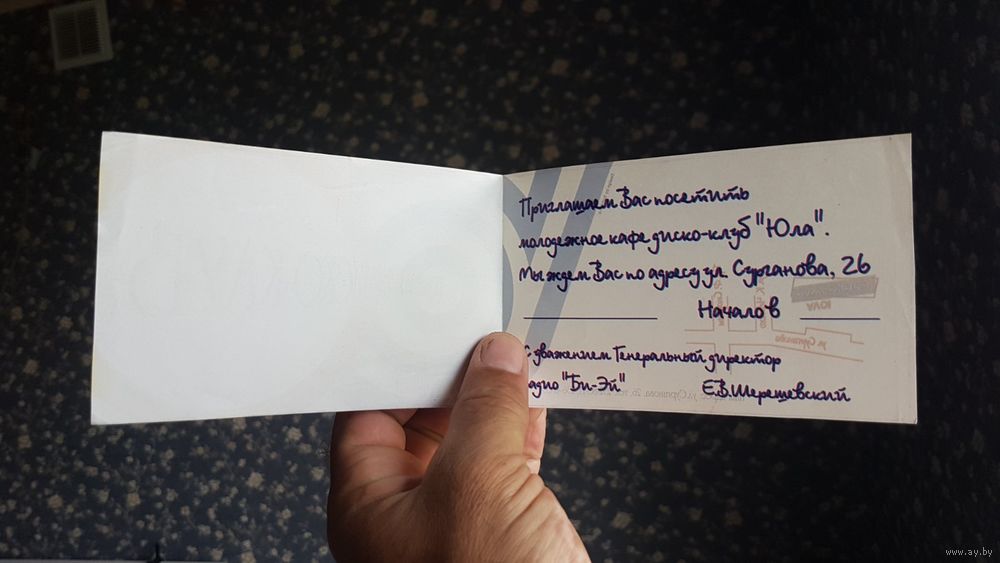 Приглашаем Вас посетить
молодежное кафе диско-клуб "Юла".
Мы ждем Вас по адресу ул. Сурганова, 26
Начало в
С уважением Генеральный директор
Радио "Би-Эй" Е.В.Шерешевский
www.ay.by